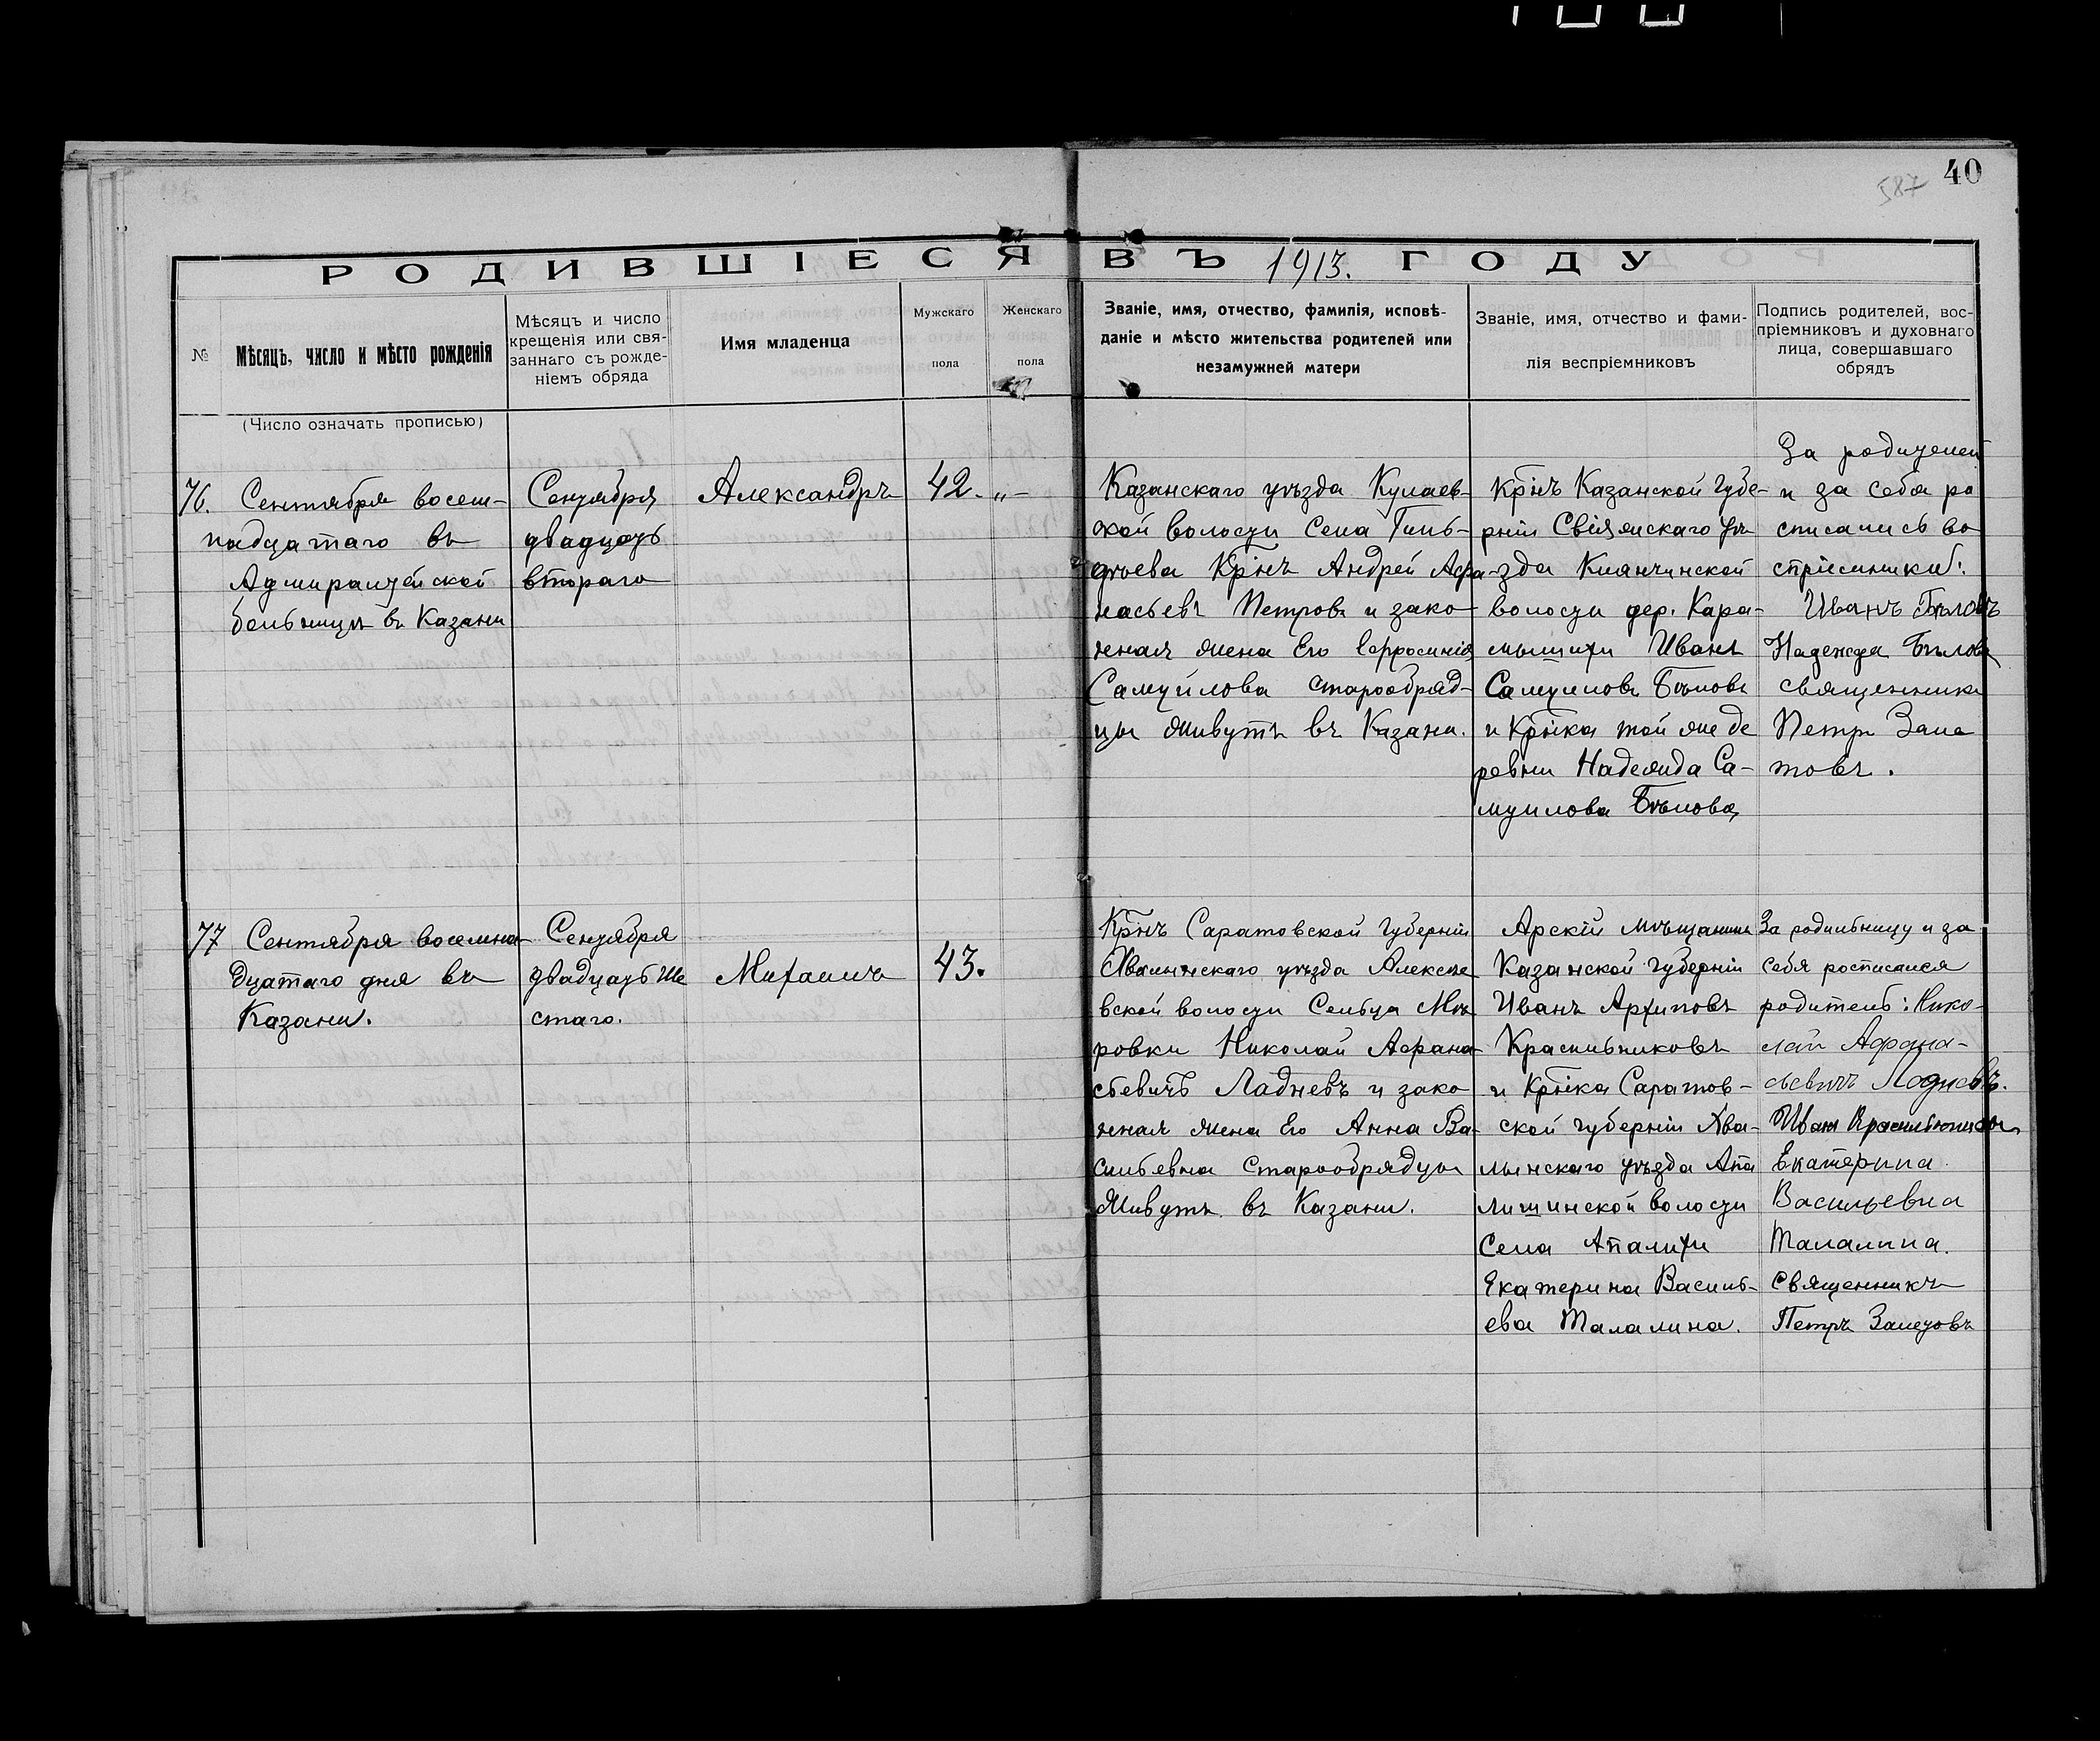 587 40
РОДИВШІЕСЯ ВЪ 1913. ГОДУ
№
Мѣсяцъ, число и мѣсто рожденія
Мѣсяцъ и число
крещенія или свя-
заннаго съ рожде-
ніемъ обряда
Имя младенца
Мужскаго
пола
Женскаго
пола
Званіе, имя, отчество, фамилія, исповѣ-
даніе и мѣсто жительства родителей или
незамужней матери
Званіе, имя, отчество и фами-
лія веспріемниковъ
Подпись родителей, вос-
пріемниковъ и духовнаго
лица, совершавшаго
обрядъ
(Число означать прописью)
76. Сентября восем-
надцатаго въ
Адмиралтейской
больницѣ въ Казани
Сентября
двадцать
втораго
Александръ
42. „ –
Казанскаго уѣзда Кулаев-
ской волости Села Гиль-
дѣева Крінъ Андрей Афа-
насьевъ Петровъ и зако
нная жена Его Ефросинія
Самуйлова старообряд-
цы живутъ въ Казани.
Крінъ Казанской Губе-
рніи Свіяжскаго уѣ
зда Киянчинской
волости дер. Кара-
мышихи Иванъ
Самуиловъ Бѣловъ
и Крінка той же де
ревни Надежда Са-
муилова Бѣлова,
За родителей
и за себя ро
списались во
спріемники:
Иванъ Бѣловъ
Надежда Бѣлова
священникъ
Петръ Зале
товъ.
77 Сентября восемна-
дцатаго дня въ
Казани.
Сентября
двадцать ше
стаго.
Михаилъ
43.
Крінъ Саратовской Губерніи
Хвалынскаго уѣзда Алексѣе
вской волости Сельца Мѣ
ровки Николай Афана-
сьевичъ Ладневъ и зако
нная жена Его Анна Ва-
сильевна Старообрядцы
Живутъ въ Казани.
Арскій мѣщанинъ
Казанской Губерніи
Иванъ Архиповъ
Красильниковъ
и Крінка Саратов-
ской губерніи Хва-
лынскаго уѣзда Апа
лишинской волости
Села Апалихи
Екатерина Василь-
ева Малалина.
За родильницу и за
себя росписался
родитель: Нико-
лай Афана-
сьевичъ Ладневъ.
Иванъ Красильниковъ
Екатерина
Васильевна
Малалина.
Священникъ
Петръ Залетовъ